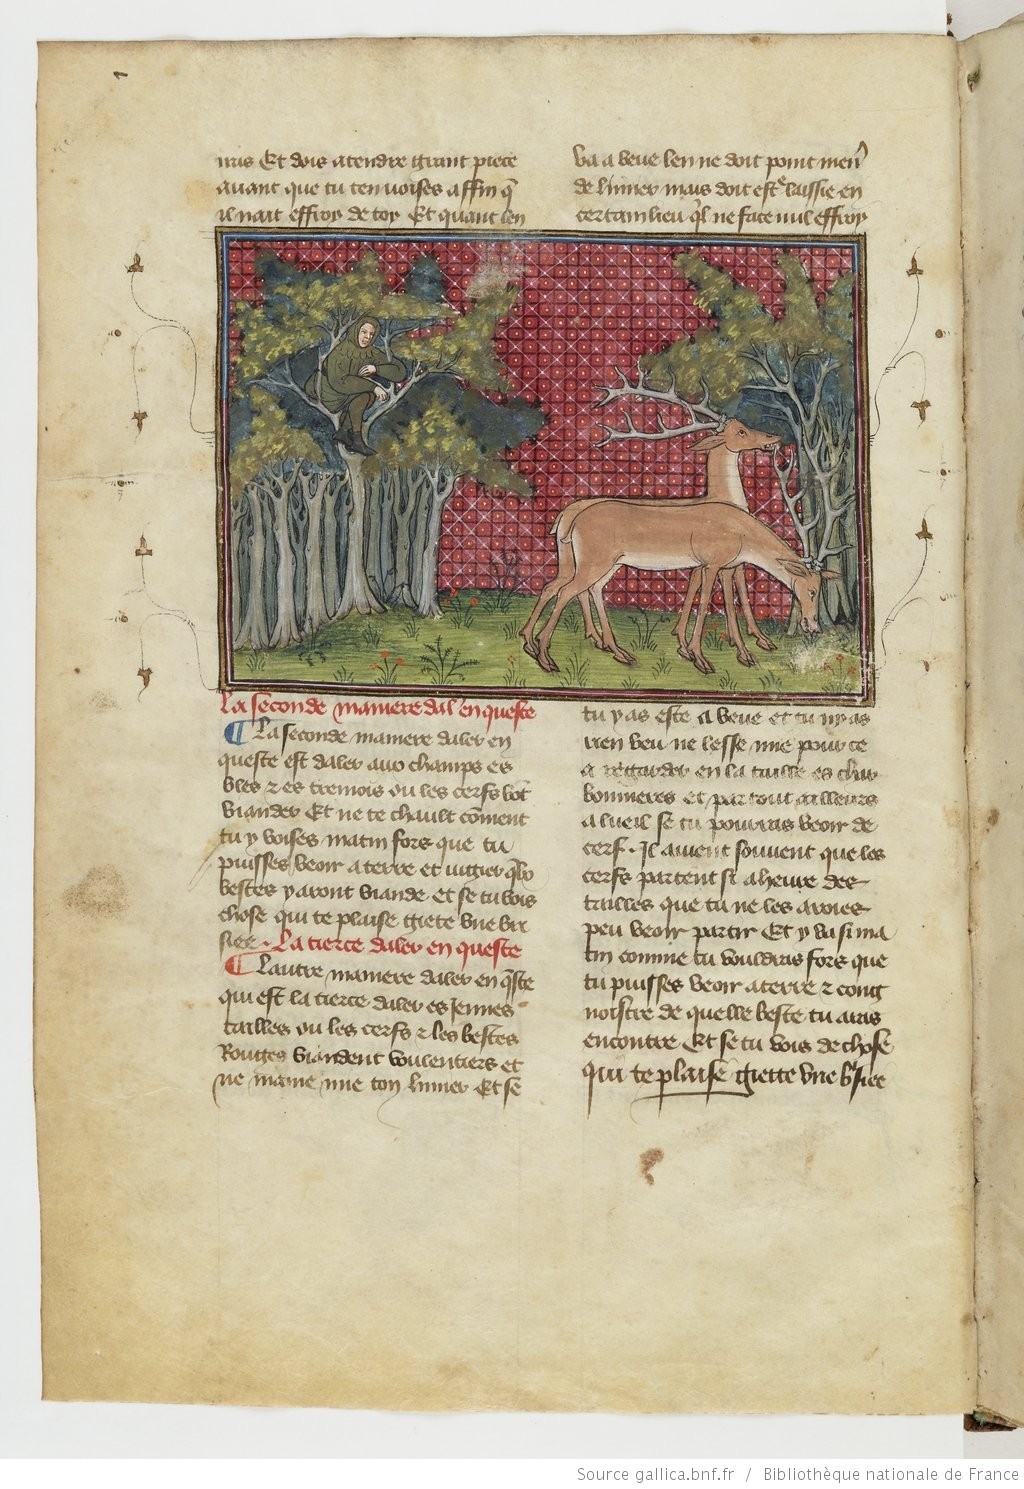 uris Et dois atendre grant piece
avant que tu ten voises affin q̃
il nait effroy de toy Et quant len
va a veue len ne doit point men̾
de limier mais doit estr̾ laissie en
certain lieu q̃l ne face nul effroy
La seconde maniere daler en queste
¶ La seconde maniere daler en
queste est daler aux champs es
bles ⁊ es tremois ou les cerfs võt
viander Et ne te chault cõment
tu y voises matin fors que tu
puisses veoir a terre et iugier
bestes y aront viande et se tu vois
chose qui te plaise giete vne bri
siee . La tierce daler en queste
¶ Lautre maniere daler en q̃ste
qui est la tierce daler es jennes
tailles ou les cerfs ⁊ les bestes
Rouges viandent voulentiers et
ne maine mie ton limier Et se
tu y as este a veue et tu ny as
rien veu ne lesse mie pour ce
a regarder en la taille es char
bonnieres et par tout ailleurs
a lueil se tu pourras veoir de
cerf . Il avient souvent que les
cerfs partent si a heure des
tailles que tu ne les aroies
peu veoir partir Et y va si ma
tin comme tu vouldras fors que
tu puisses veoir a terre ⁊ cong
noistre de quelle beste tu auras
encontre Et se tu vois de chose
qui te plaise giette vne b̾siee
Source gallica.bnf.fr / Bibliothèque nationale de France